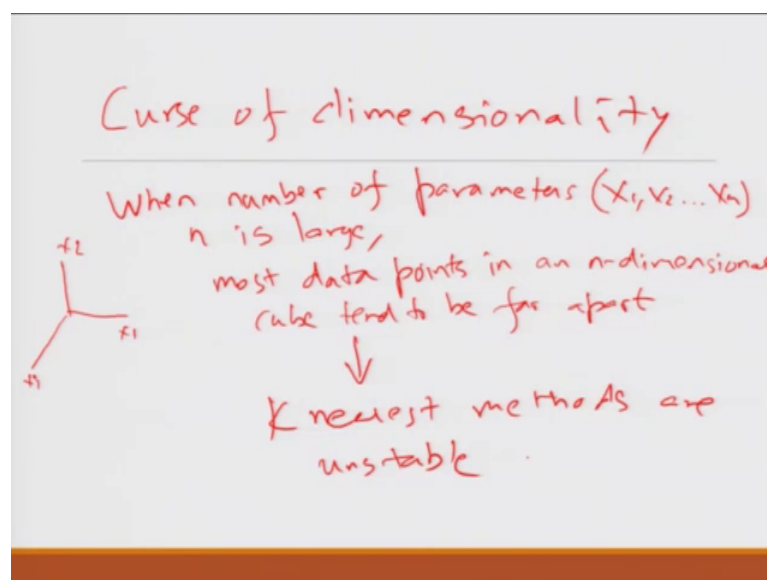 Curse of dimensionality
When number of parameters (x1, x2 ... xn)
n is large,
most data points in an n-dimensional
cube tend to be far apart
x2
x1
K nearest methods are
unstable